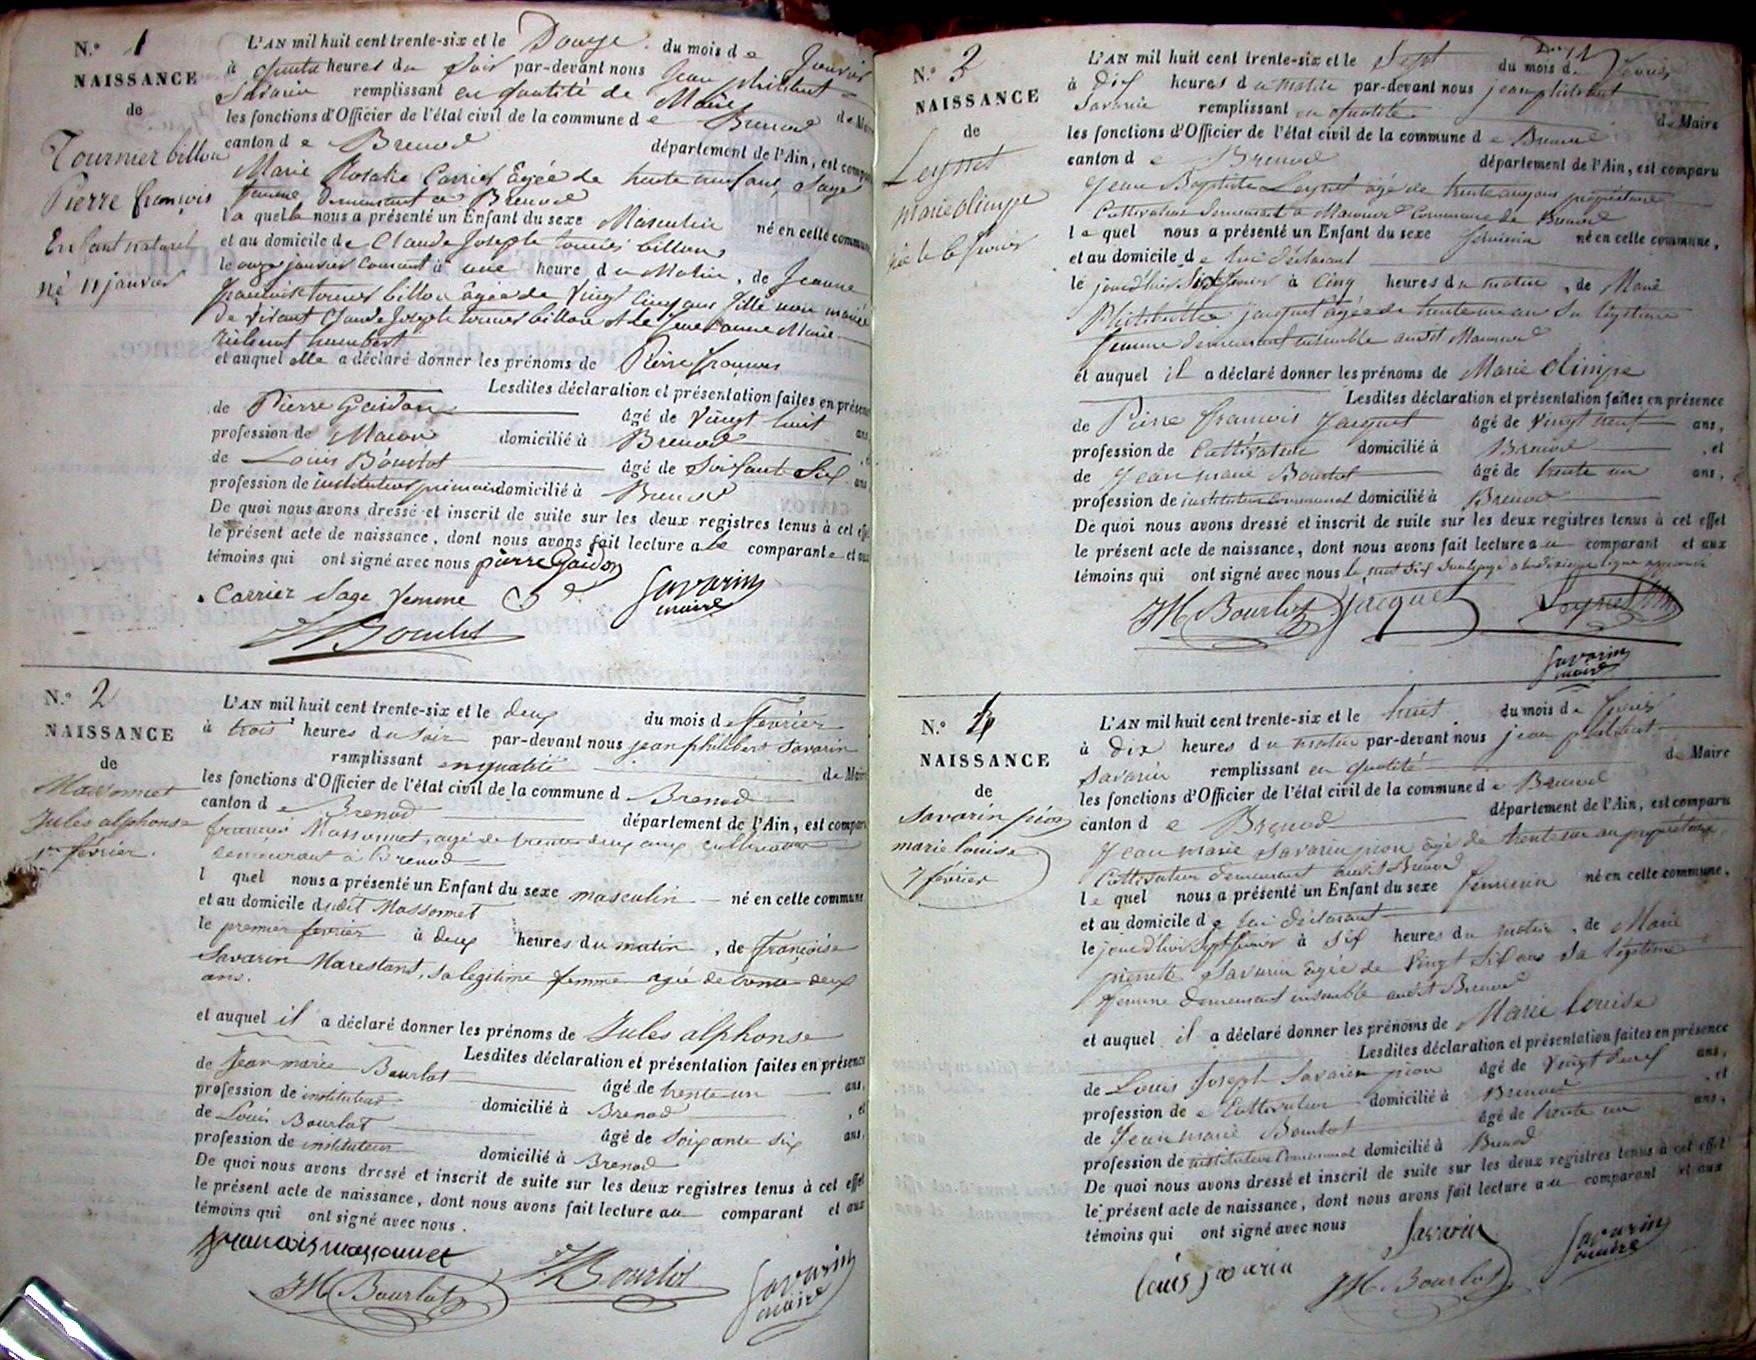 N.º 1
NAISSANCE
de
Tournier billon
Pierre françois
Enfant naturel
né 11 janvier
L'AN mil huit cent trente-six et le Douze du mois de Janvier
à quatre heures du Soir par-devant nous Jean philibert
Savarin remplissant en qualité de Maire
les fonctions d'Officier de l'état civil de la commune de Brenod de Maire
canton de Brenod département de l'Ain, est comparu
Marie Rosalie Carrier âgée de trente neuf ans Sage
femme demeurant à Brenod
laquelle nous a présenté un Enfant du sexe Masculin né en cette commune
et au domicile de Claude Joseph tournier billon
le onze janvier Courant à une heure du Matin, de Jeanne
françoise tournier billon âgée de Vingt cinq ans fille non mariée
de vivant Claude Joseph tournier billon et de Jeanne Marie
humbert
et auquel elle a déclaré donner les prénoms de Pierre françois
Lesdites déclaration et présentation faites en présence
de Pierre Gaidon âgé de Vingt huit ans
profession de Maçon domicilié à Brenod
de Louis Bourlot âgé de Soixante Six ans
profession de instituteur primaire domicilié à Brenod
De quoi nous avons dressé et inscrit de suite sur les deux registres tenus à cet effet
le présent acte de naissance, dont nous avons fait lecture a la comparante et aux
témoins qui ont signé avec nous pierre Gaidon
Carrier Sage femme Savarin
maire
Bourlot
N.º 2
NAISSANCE
de
Massonnet
Jules alphonse
1er février.
L'AN mil huit cent trente-six et le deux du mois de février
à trois heures du soir par-devant nous jean philibert Savarin
remplissant en qualité de Maire
les fonctions d'Officier de l'état civil de la commune d Brenod
canton de Brenod département de l'Ain, est comparu
françois Massonnet, agé de trente deux ans cultivateur
demeurant à Brenod
l quel nous a présenté un Enfant du sexe masculin né en cette commune
et au domicile dudit Massonnet
le premier février à deux heures du matin, de françoise
Savarin Marestant, sa légitime femme agée de trente deux
ans.
et auquel il a déclaré donner les prénoms de Jules alphonse
Lesdites déclaration et présentation faites en présence
de Jean marie Bourlot âgé de trente un ans,
profession de instituteur domicilié à Brenod, et
de Louis Bourlot âgé de soixante six ans,
profession de instituteur domicilié à Brenod
De quoi nous avons dressé et inscrit de suite sur les deux registres tenus à cet effet
le présent acte de naissance, dont nous avons fait lecture au comparant et aux
témoins qui ont signé avec nous.
francois massonnet
JM Bourlot Bourlot Savarin
maire
N.º 3
NAISSANCE
de
Leynet
marie olimpe
née le 6 février
L'AN mil huit cent trente-six et le Sept du mois de février
à Dix heures du matin par-devant nous jean philibert
Savarin remplissant en qualité de Maire
les fonctions d'Officier de l'état civil de la commune de Brenod
canton de Brenod département de l'Ain, est comparu
Jean Baptiste Leynet âgé de trente ans propriétaire
Cultivateur demeurant à Commune de Brenod
lequel nous a présenté un Enfant du sexe féminin né en cette commune,
et au domicile de lui déclarant
le jourd'hier Six février à Cinq heures du matin, de Marie
Philiberthe jacquet âgée de trente un an Sa légitime
femme demeurant ensemble audit
et auquel il a déclaré donner les prénoms de Marie Olimpe
Lesdites déclaration et présentation faites en présence
de Pierre francois Jacquet âgé de Vingt neuf ans,
profession de Cultivateur domicilié à Brenod, et
de Jean marie Bourlot âgé de trente un ans,
profession de instituteur Communal domicilié à Brenod
De quoi nous avons dressé et inscrit de suite sur les deux registres tenus à cet effet
le présent acte de naissance, dont nous avons fait lecture au comparant et aux
témoins qui ont signé avec nous
JM Bourlot Jacquet Leynet
Savarin
maire
N.º 4
NAISSANCE
de
Savarin pion
marie louise
7 février
L'AN mil huit cent trente-six et le huit du mois de février
à Dix heures du matin par-devant nous jean philibert
Savarin remplissant en qualité de Maire
les fonctions d'Officier de l'état civil de la commune de Brenod
canton de Brenod département de l'Ain, est comparu
Jean marie Savarin pion âgé de trente un an propriétaire
Cultivateur demeurant audit Brenod
lequel nous a présenté un Enfant du sexe féminin né en cette commune,
et au domicile de lui déclarant
le jourd'hier Sept février à Six heures du matin, de Marie
pierrette Savarin âgée de Vingt Six ans Sa légitime
femme demeurant ensemble audit Brenod
et auquel il a déclaré donner les prénoms de Marie Louise
Lesdites déclaration et présentation faites en présence
de Louis Joseph Savarin pion âgé de Vingt neuf ans,
profession de Cultivateur domicilié à Brenod, et
de Jean marie Bourlot âgé de trente un ans,
profession de instituteur Communal domicilié à Brenod
De quoi nous avons dressé et inscrit de suite sur les deux registres tenus à cet effet
le présent acte de naissance, dont nous avons fait lecture au comparant et aux
témoins qui ont signé avec nous Savarin
Savarin
maire
louis savarin
JM Bourlot